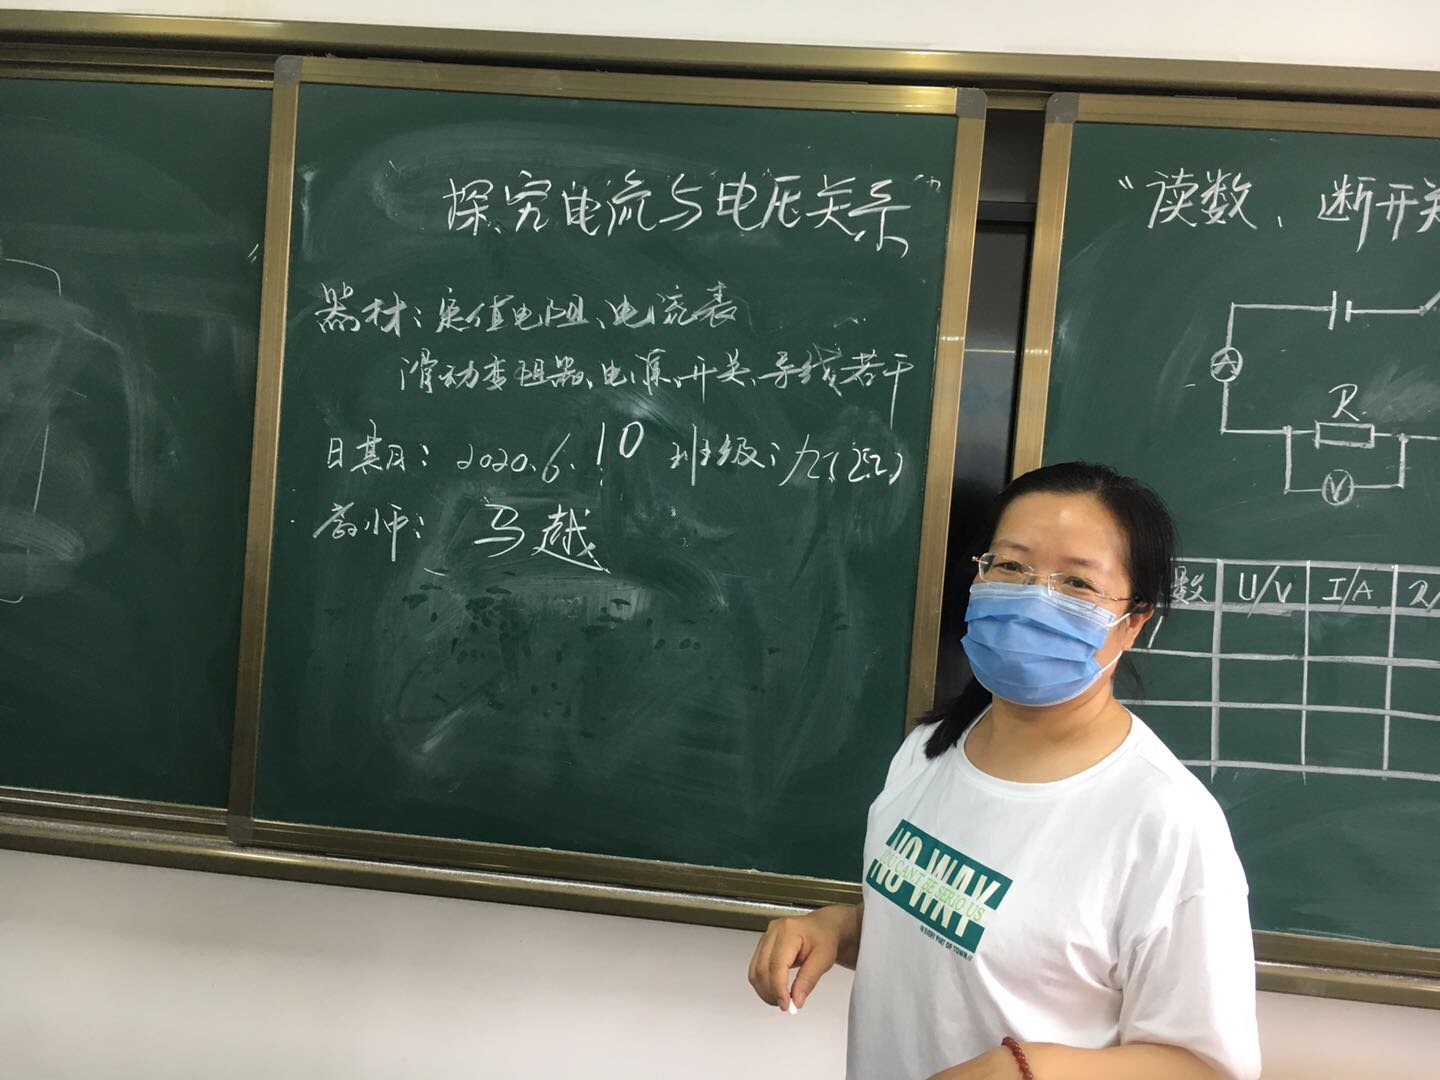 探究电流与电压关系
器材：定值电阻、电流表
滑动变阻器、电源、开关、导线若干
日期：2020.6.10 班级：九(25.2)
教师：马越
“读数、断开关
A
R
V
数 U/V I/A R/
1
NO WAY
YOU CANT BE SERIO US
NO WAY
IN EVERY PART OF TOWN.//